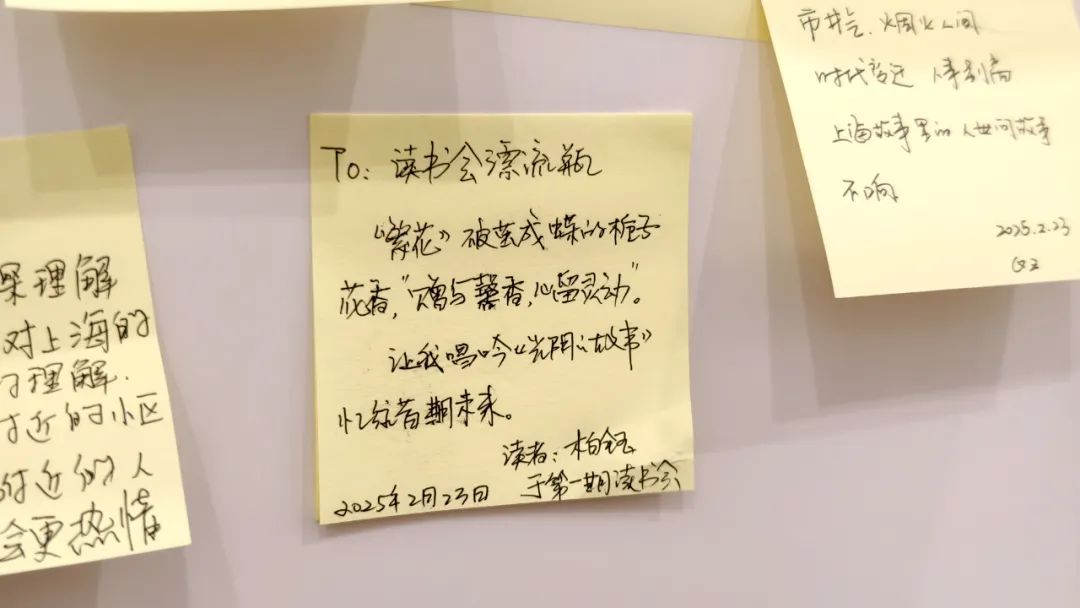 To: 读书会漂流瓶
《繁花》破茧成蝶的栀子
花香,“赠与馨香,心留灵动”。
让我唱吟《光阴的故事》
忆往昔期未来。
读者:柏钰
于第一期读书会
2025年2月23日
市井气.烟火人间
时代变迁 人事别离
上海故事里的人世间故事
不响
2025.2.23
深理解
对上海的
理解.
附近的小区
附近的人
会更热情